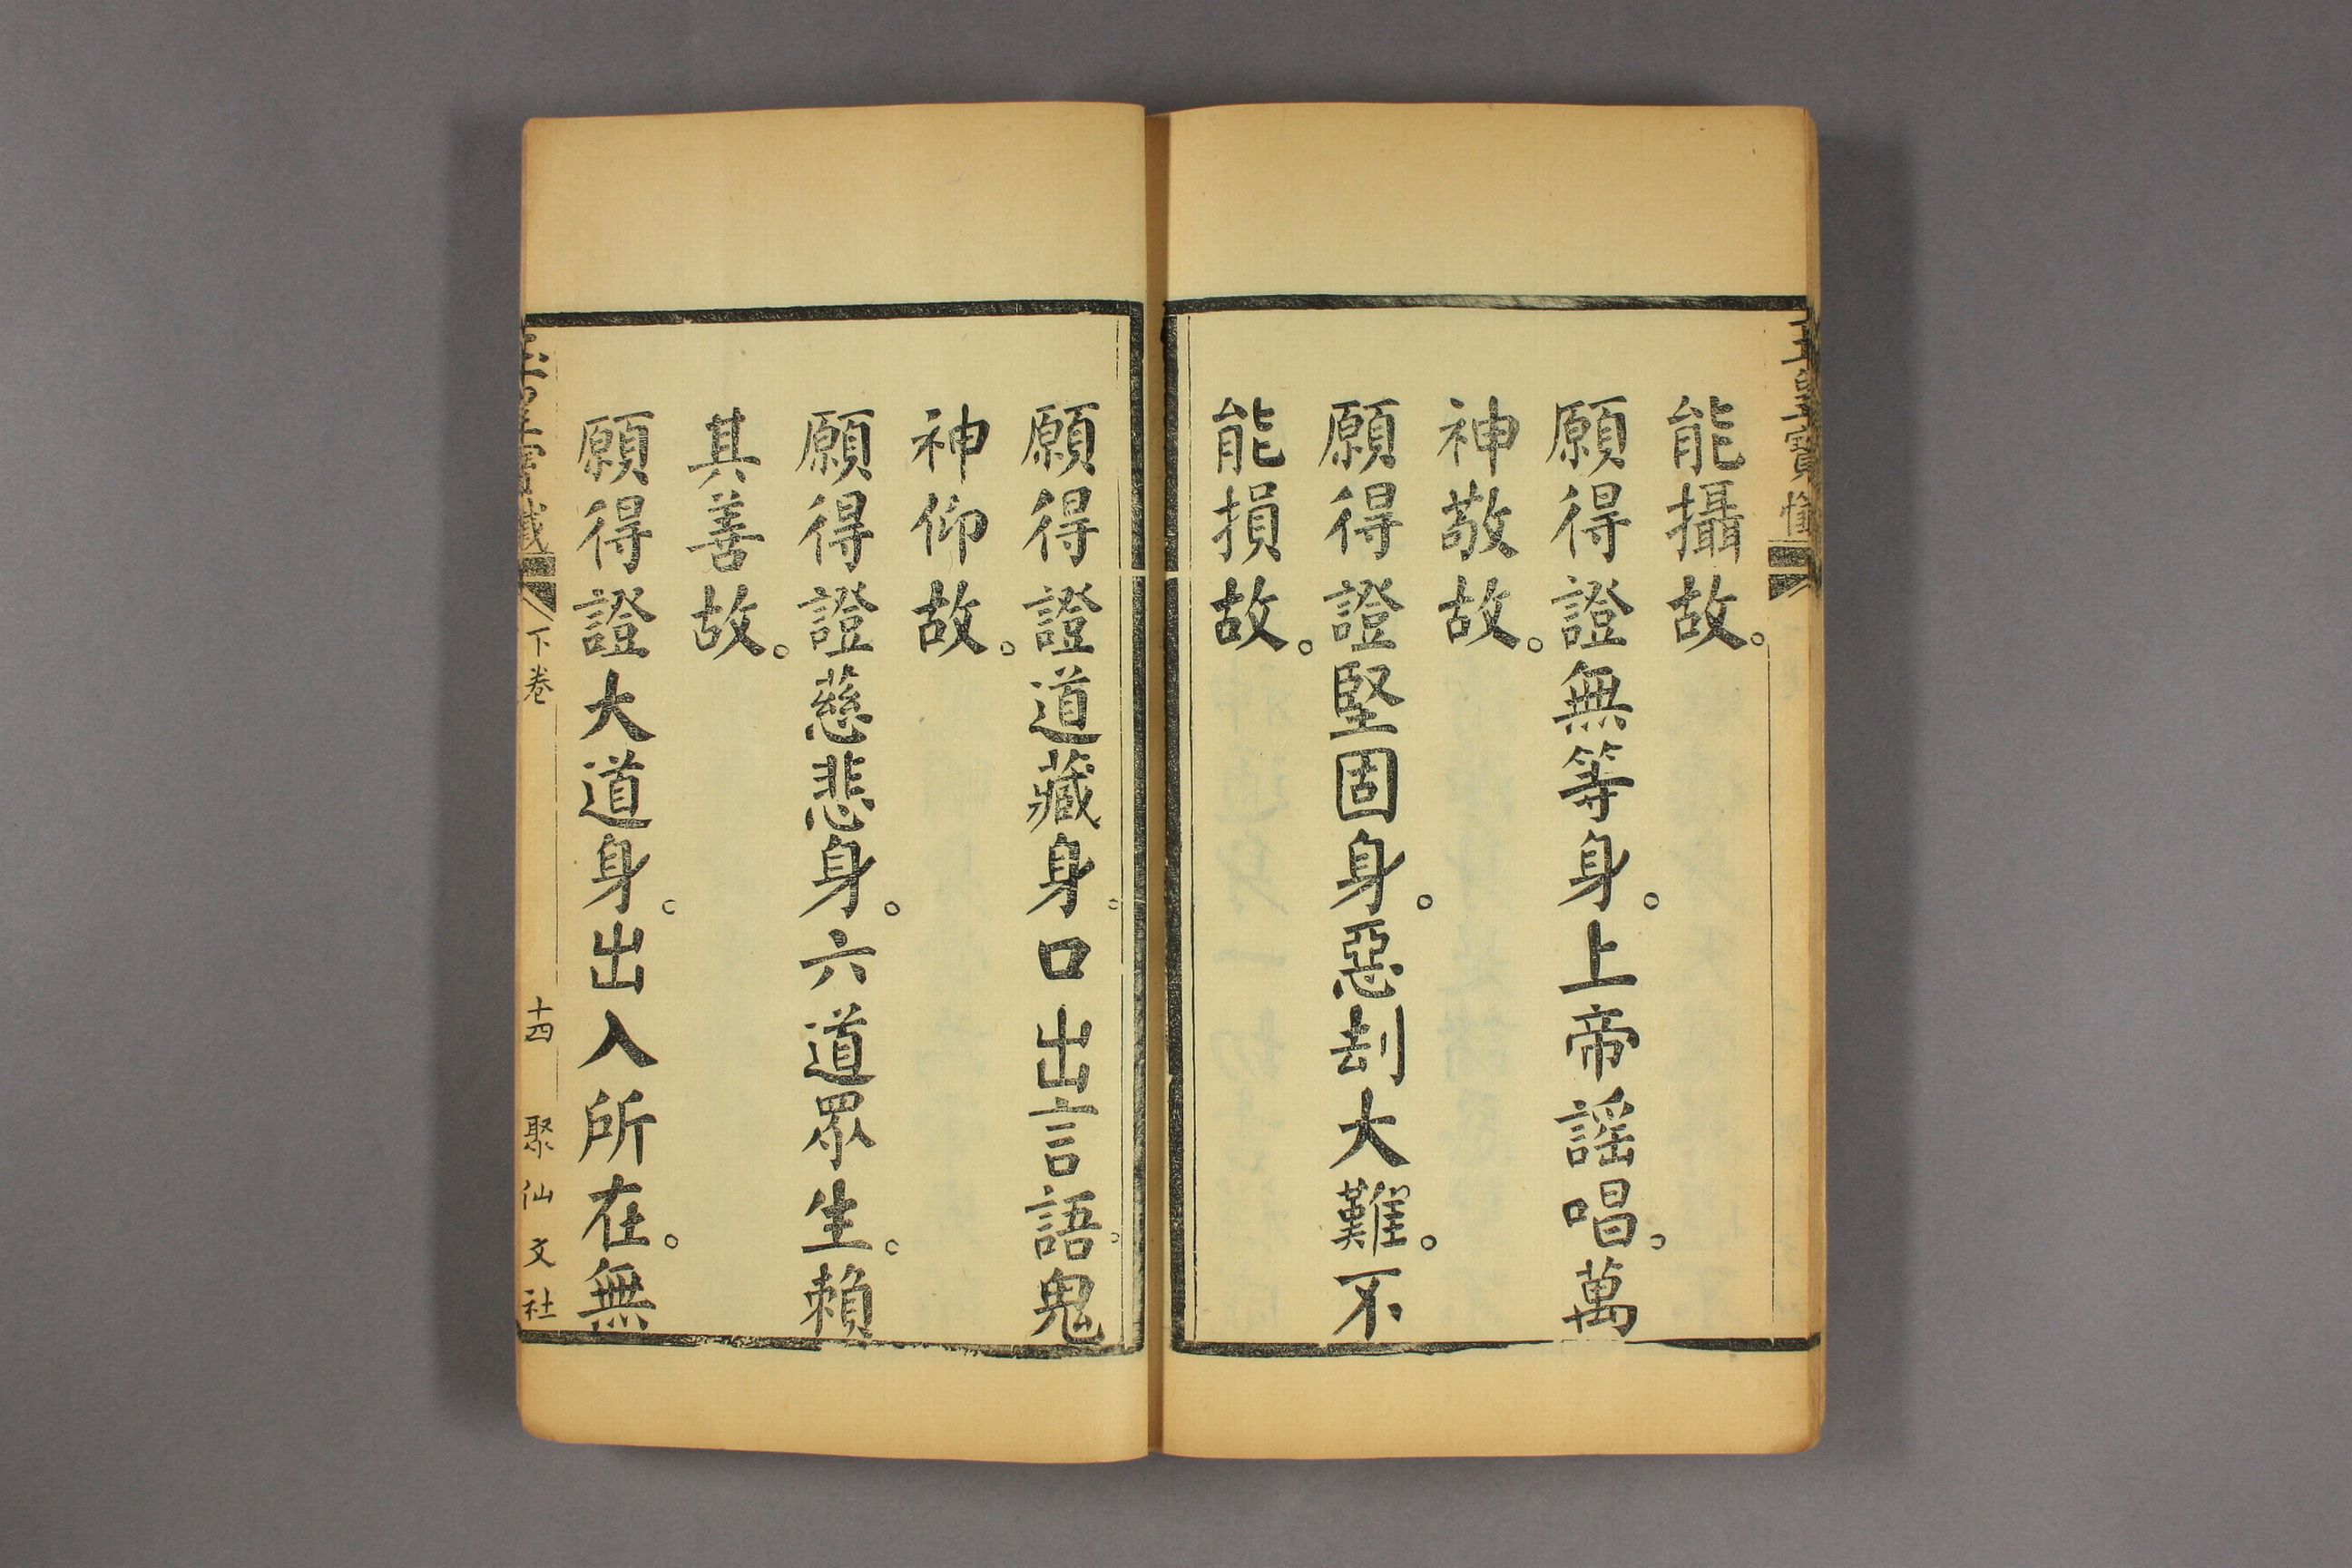 能攝故。
願得證無等身。上帝謡唱。萬
神敬故。
願得證堅固身。惡刦大難。不
能損故。
願得證道藏身。口出言語。鬼
神仰故。
願得證慈悲身。六道眾生。賴
其善故。
願得證大道身。出入所在。無
下卷
十四
聚仙文社